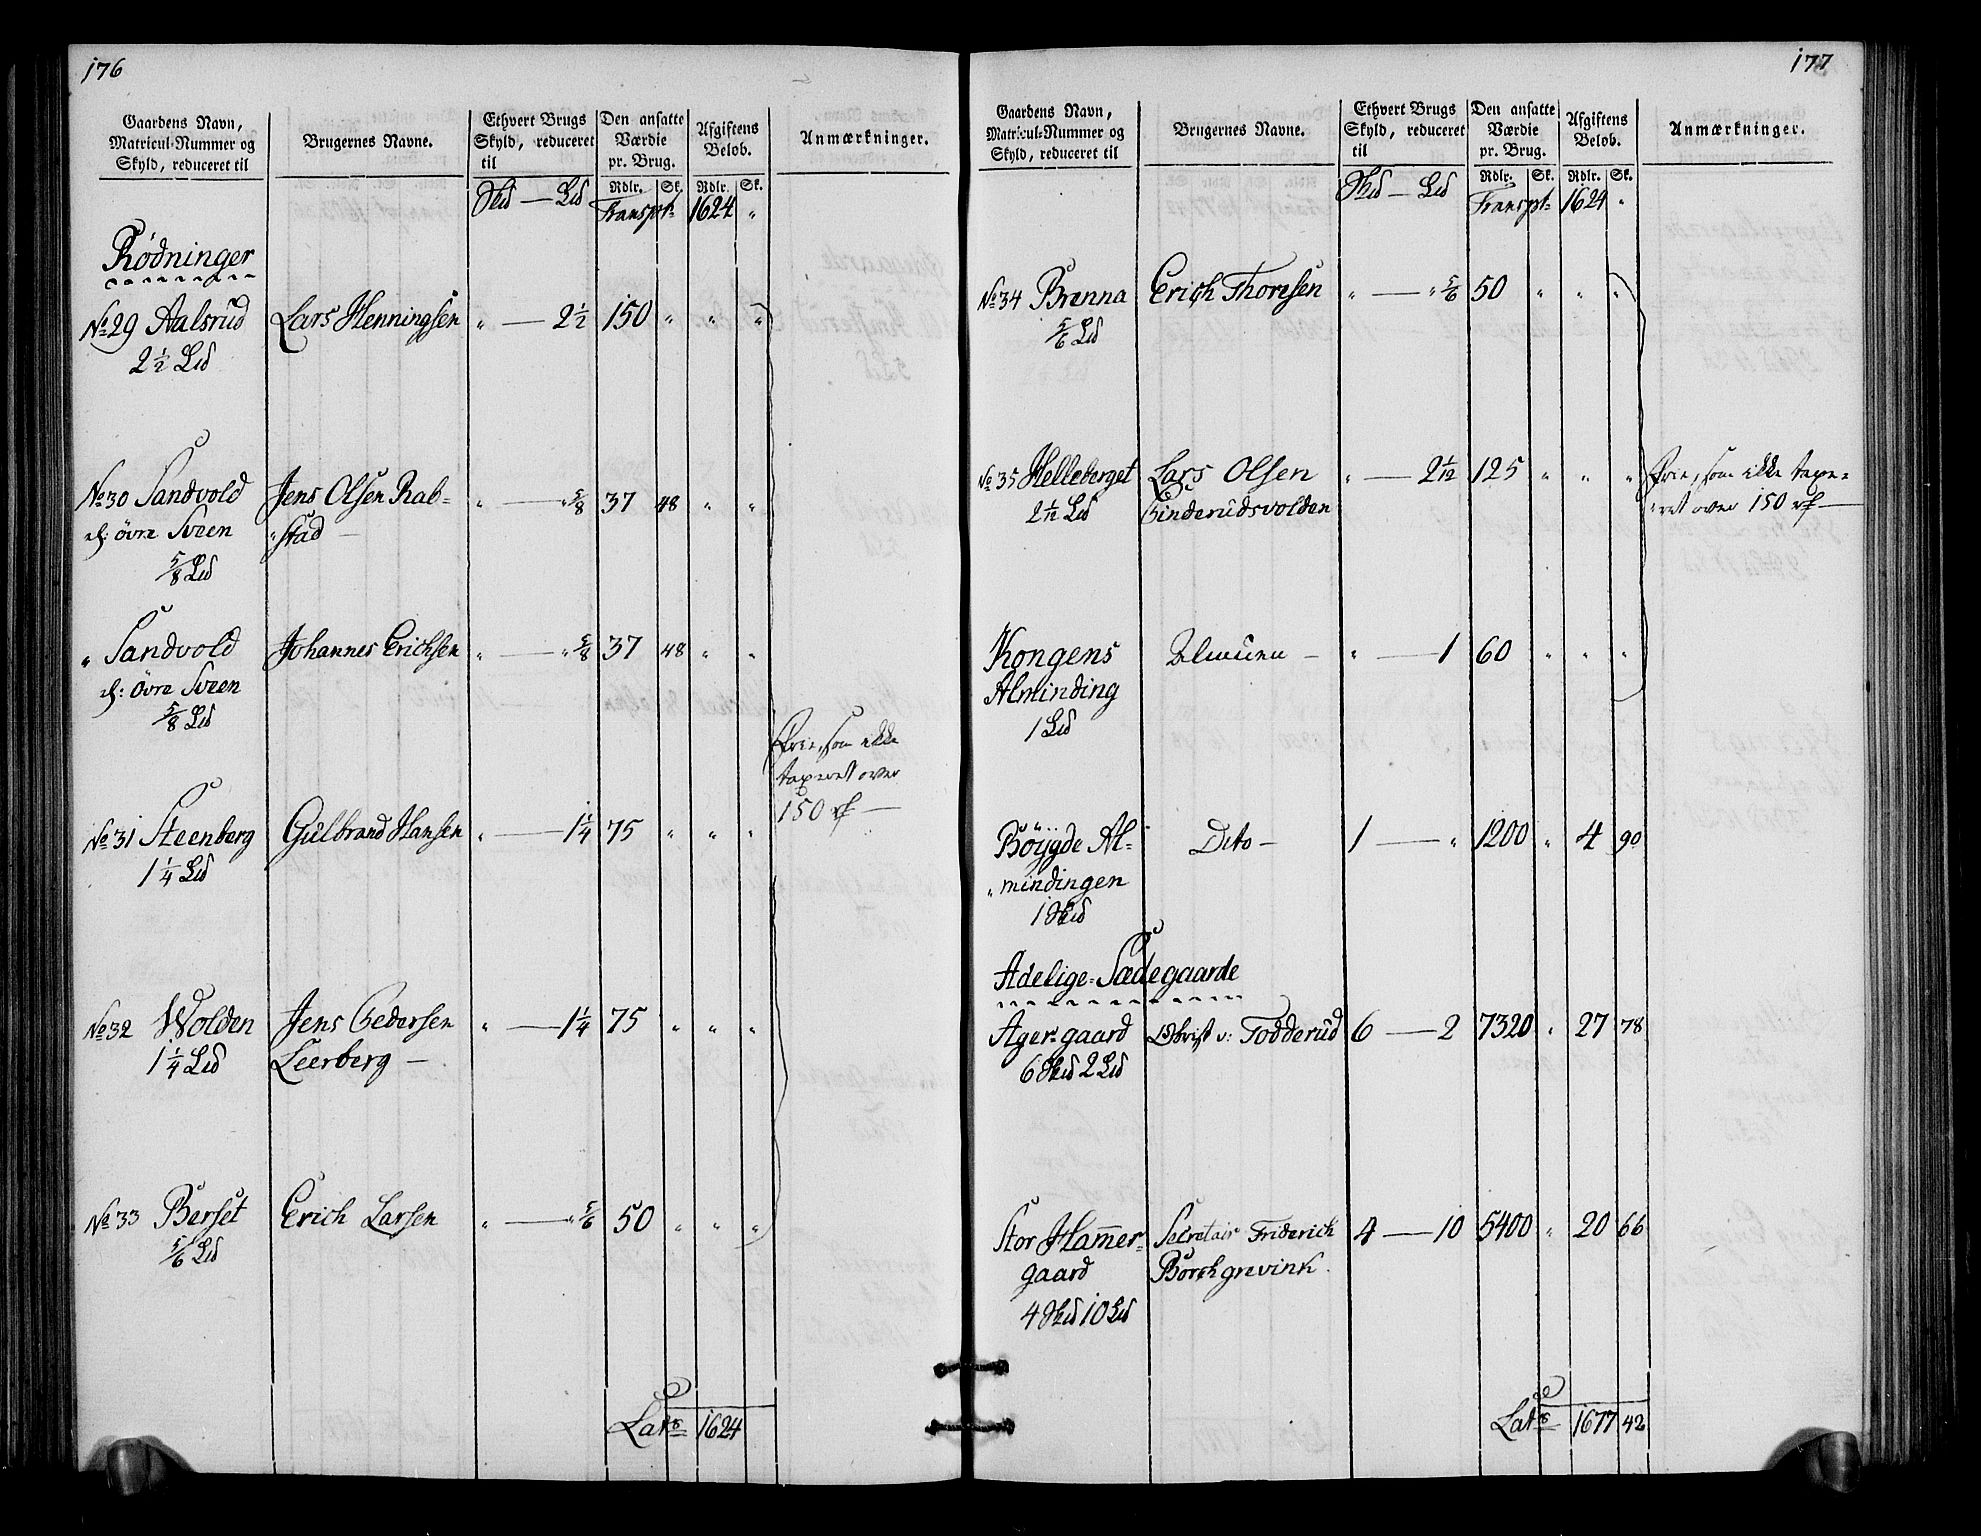 176
Gaardens Navn,
Matricul-Nummer og
Skyld, reduceret til
Brugernes Navne.
Ethvert Brugs
Skyld, reduceret
til
Den ansatte
Værdie
pr. Brug.
Afgiftens
Beløb.
Anmærkninger.
Rdlr. Sk. Rdlr. Sk.
Skd — Ld Transpt 1624 "
Rödninger
No 29 Aalsrud Lars Henningsen " — 2½ 150 " " "
2½ Ld
No 30 Sandvold Jens Olsen Rab- " — " 5/8 37 48 " "
el: övre Sveen "stad —
5/8 Ld
" Sandvold Johannes Erichsen " — " 5/8 37 48 " "
el: Övre Sveen
5/8 Ld
Frie, som ikke
taxeret over
150 rd —
No 31 Steenberg Gulbrand Hansen " — 1¼ 75 " " "
1¼ Ld
No 32 Wolden Jens Pedersen " — 1¼ 75 " " "
1¼ Ld Leerberg —
No 33 Berset Erich Larsen " — " 5/6 50 " " "
5/6 Ld
Lats 1624
177
Gaardens Navn,
Matricul-Nummer og
Skyld, reduceret til
Brugernes Navne.
Ethvert Brugs
Skyld, reduceret
til
Den ansatte
Værdie
pr. Brug.
Afgiftens
Beløb.
Anmærkninger.
Rdlr. Sk. Rdlr. Sk.
Skd — Ld Transpt 1624 "
No 34 Brenna Erich Thoresen " — " 5/6 50 " " "
5/6 Ld
No 35 Helleberget Lars Olsen " — 2 1/12 125 " " " Frie, som ikke taxe-
2 1/12 Ld Pinderudsvolden "ret over 150 rd —
Kongens Almuen — " — 1 60 " " "
Alminding
1 Ld
Böijgde Al- Dito — 1 — " 1200 " 4 90
"mindingen
1 Skd
Adelige-Sædegaarde
Ager-gaard Christ v: Todderud 6 — 2 7320 " 27 78
6 Skd 2 Ld
Stor Hamer- Secretair Friderich 4 — 10 5400 " 20 66
gaard Borchgrevink.
4 Skd 10 Ld
Lats 1677 42